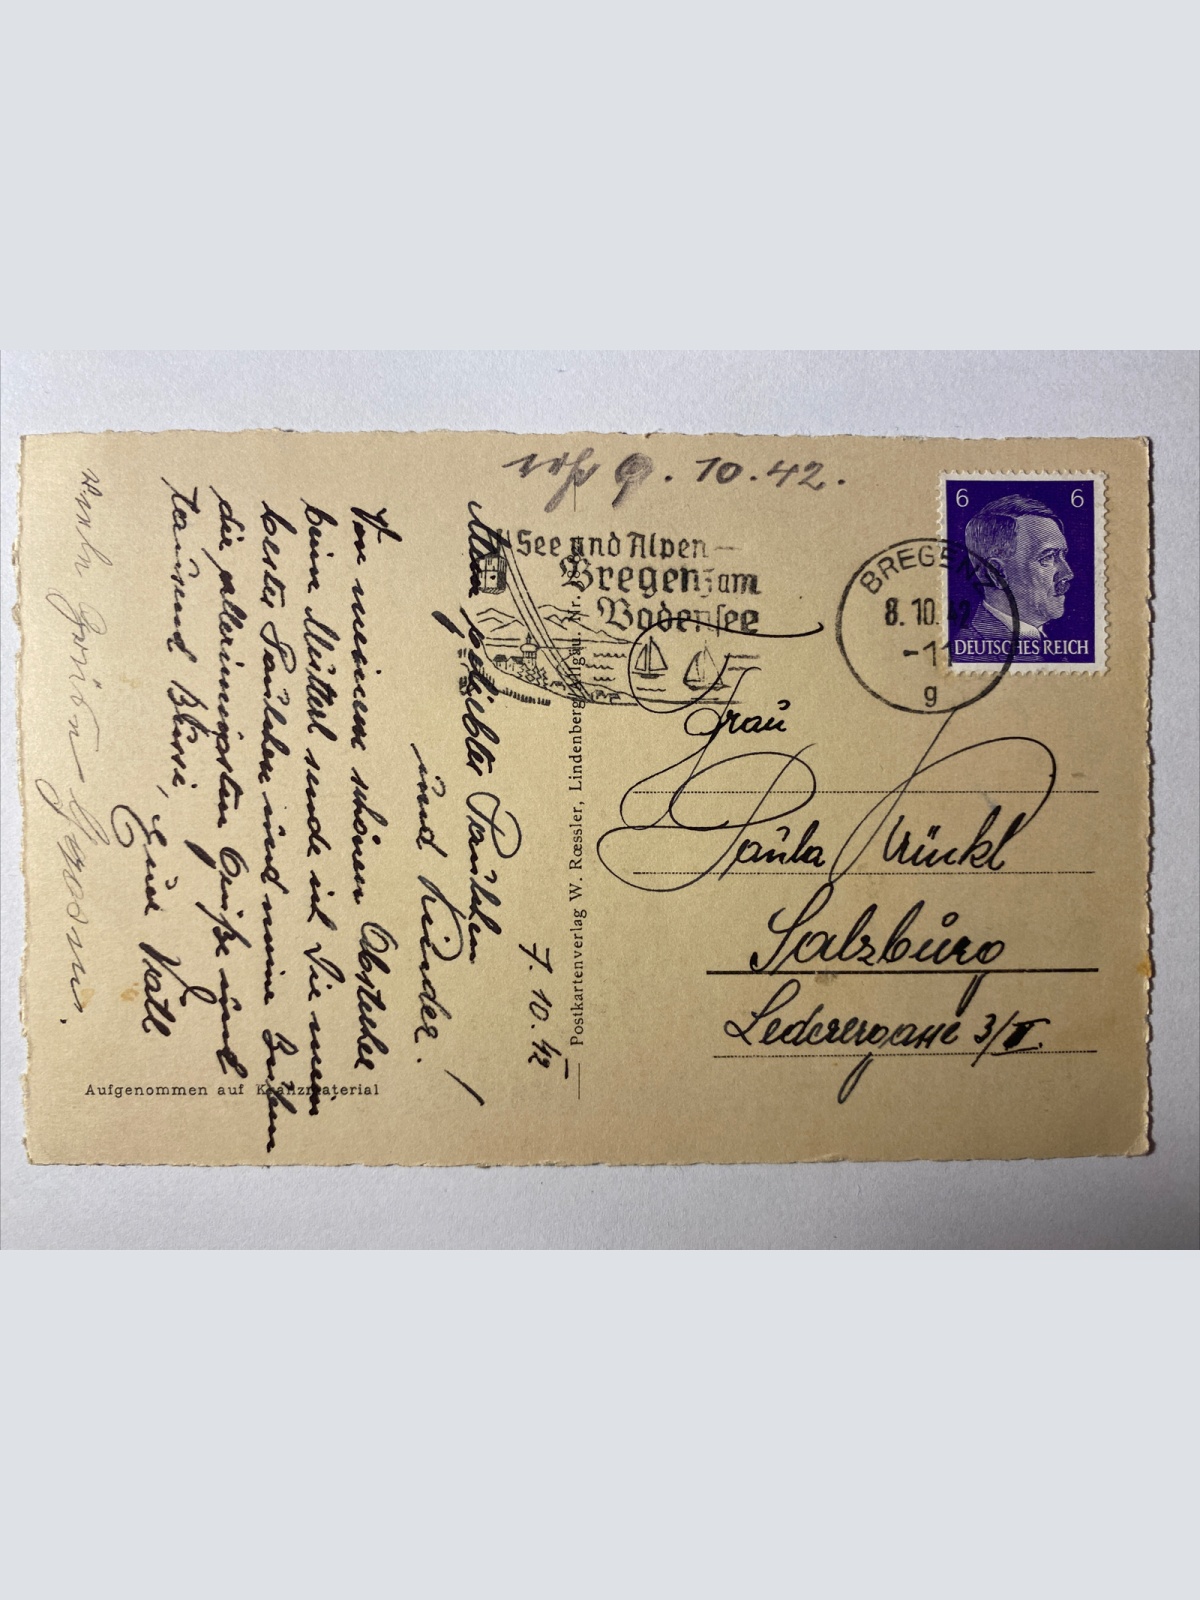 erh 9. 10. 42.
6 6
DEUTSCHES REICH
BREGENZ
8.10.42
-11
g
See und Alpen-
Bregenz am
Bodensee
Frau
Paula Krückl
Salzburg
Lederergasse 3/II.
Postkartenverlag W. Rœssler, Lindenberg Allgäu. Nr.
7. 10. 42
Mein geliebtes Paulchen
und Kinder!
Von meinem schönen Abstecher
beim Mutterl sende ich Dir mein
bestes Paulchen und meine Buben
die allerinnigsten Grüße und
tausend Bussi,
Euer Vatl
viele Grüße
Aufgenommen auf Kranzmaterial